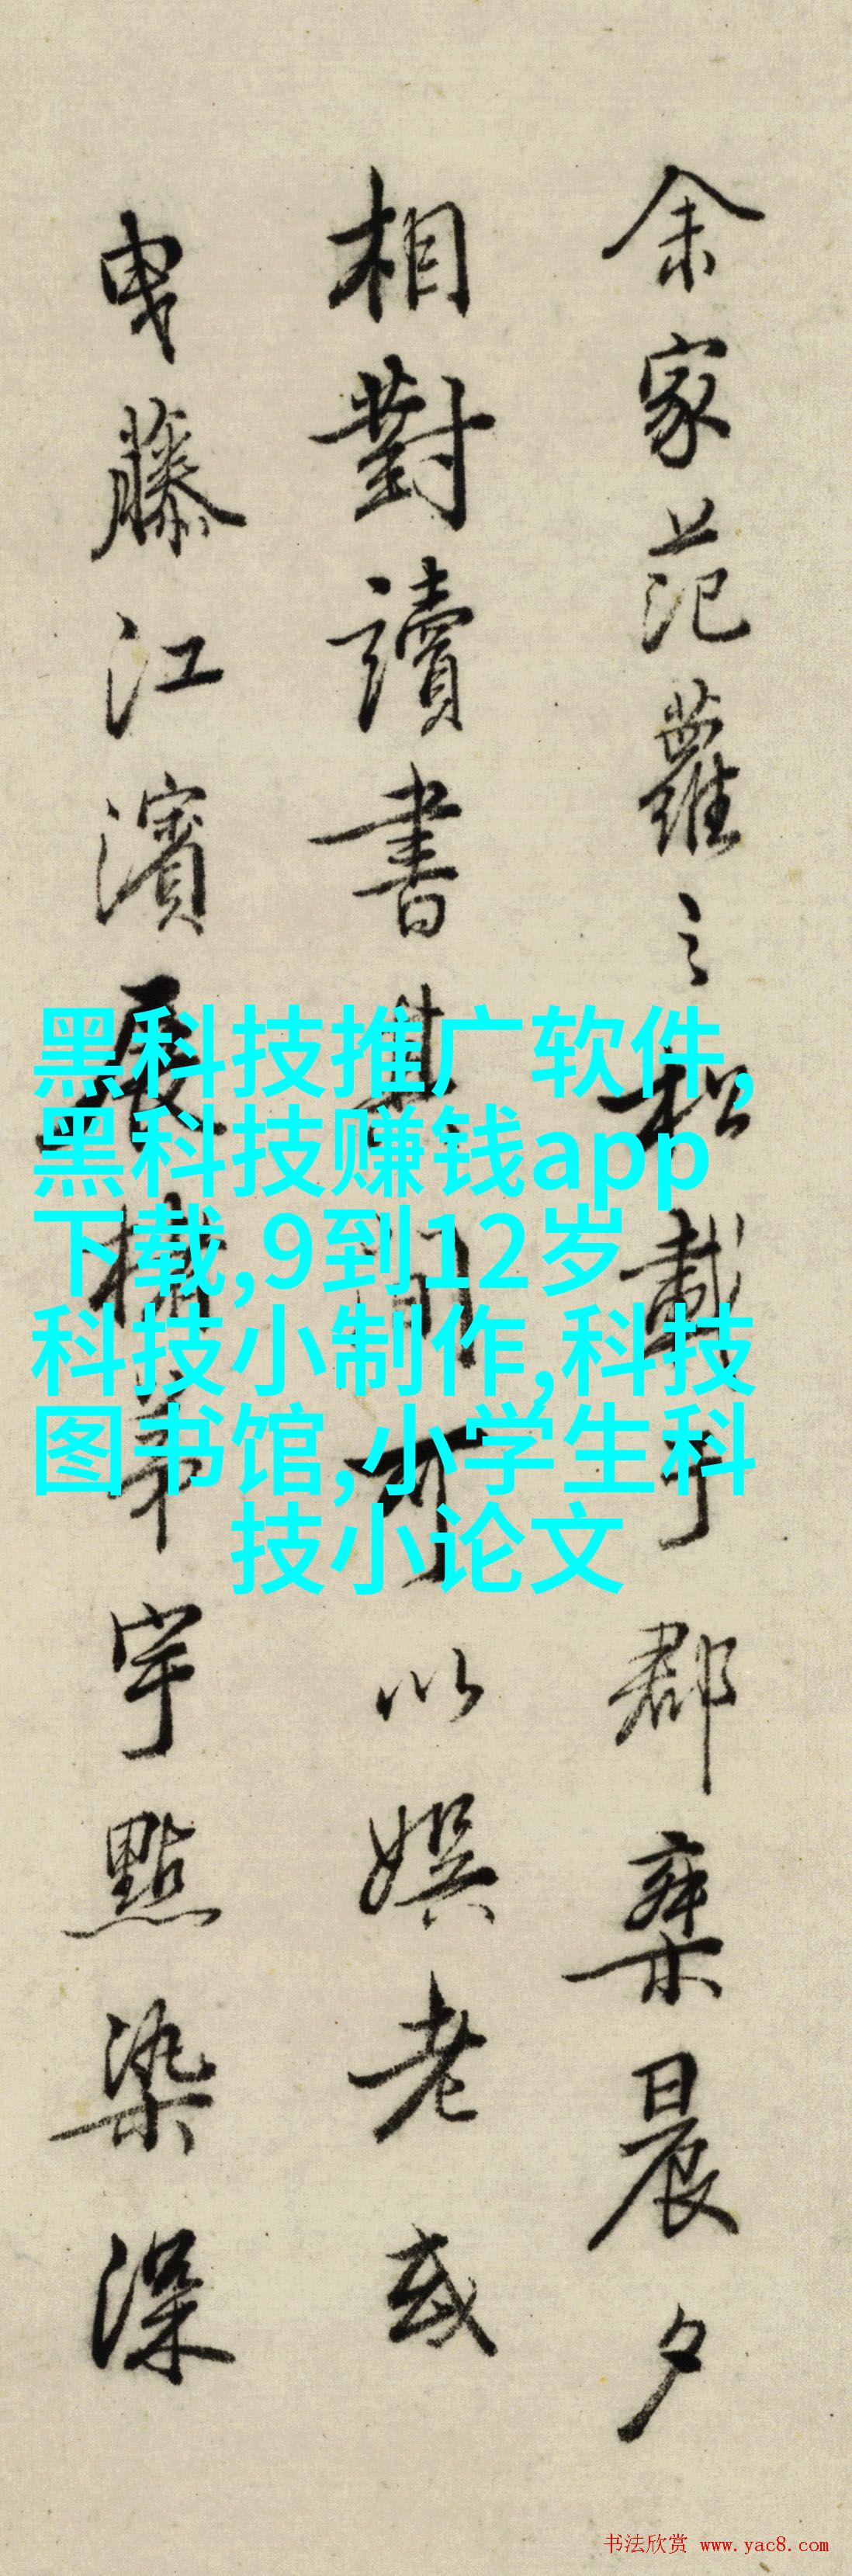 余家范蘿之松載于郡乘晨夕
相對讀書其間可以娱老或
曳藤江濱長橋茅宇點染深
黑科技推广软件,
黑科技赚钱app
下载,9到12岁
科技小制作,科技
图书馆,小学生科
技小论文
书法欣赏 www.yac8.com